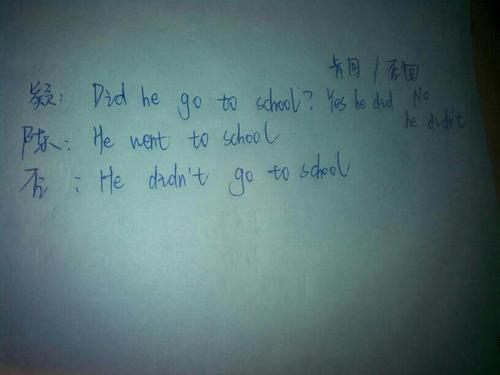 肯回 / 否回
疑: Did he go to school? Yes he did No
he didn't
陈: He went to school
否: He didn't go to school